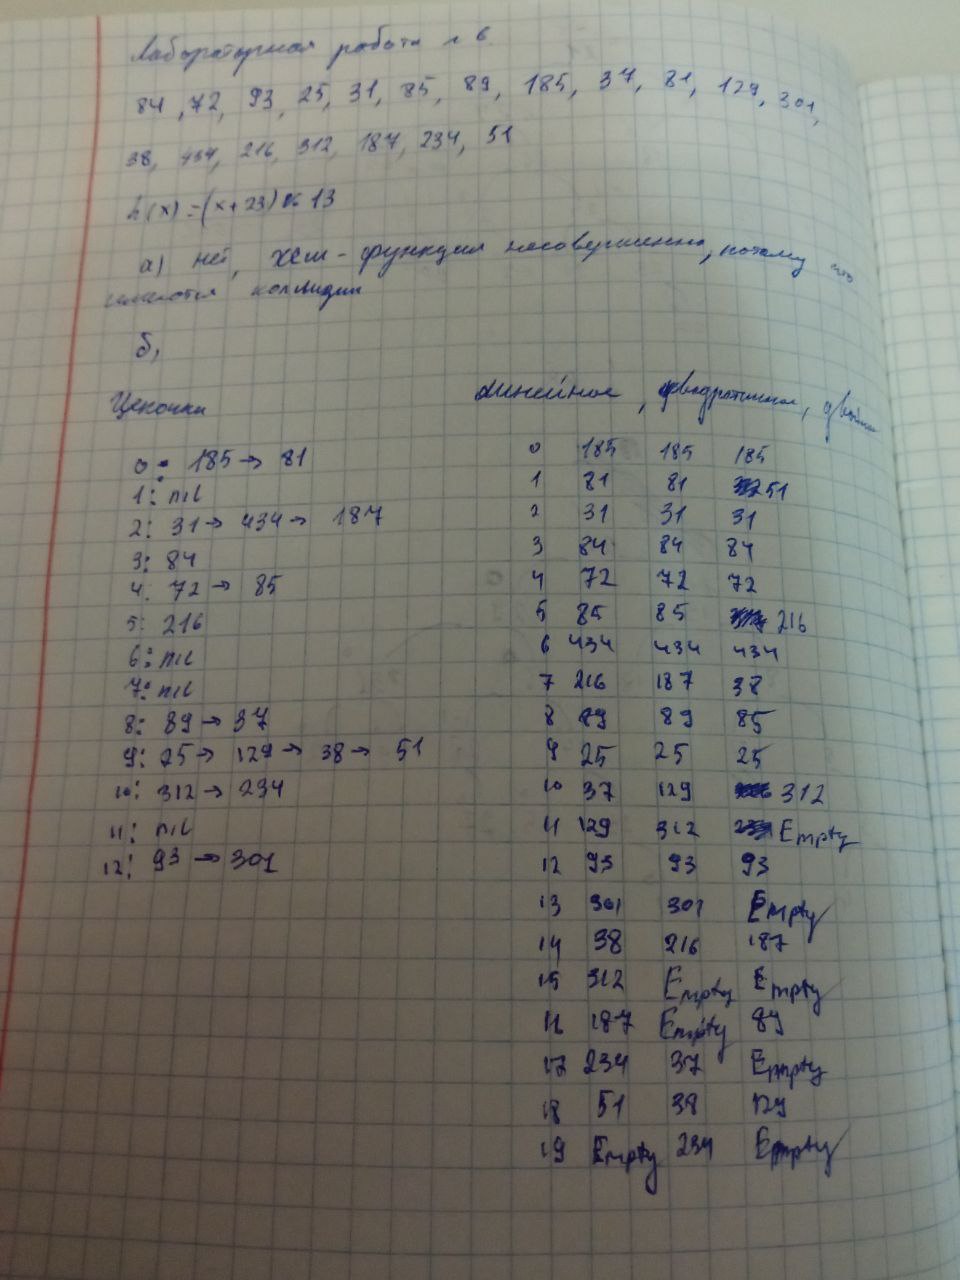 Лабораторная работа № 6
84, 72, 93, 25, 31, 85, 89, 185, 37, 81, 129, 301,
38, 434, 216, 312, 187, 234, 51
h(x) = (x+23) % 13
а) нет, хеш-функция несовершенна, потому что
имеются коллизии
б)
Цепочки
0: 185 → 81
1: nil
2: 31 → 434 → 187
3: 84
4: 72 → 85
5: 216
6: nil
7: nil
8: 89 → 37
9: 25 → 129 → 38 → 51
10: 312 → 234
11: nil
12: 93 → 301
линейное, квадратичное,
0 185 185 185
1 81 81 51
2 31 31 31
3 84 84 84
4 72 72 72
5 85 85 216
6 434 434 434
7 216 187 38
8 89 89 85
9 25 25 25
10 37 129 312
11 129 312 Empty
12 93 93 93
13 301 301 Empty
14 38 216 187
15 312 Empty Empty
16 187 Empty 89
17 234 37 Empty
18 51 38 129
19 Empty 234 Empty